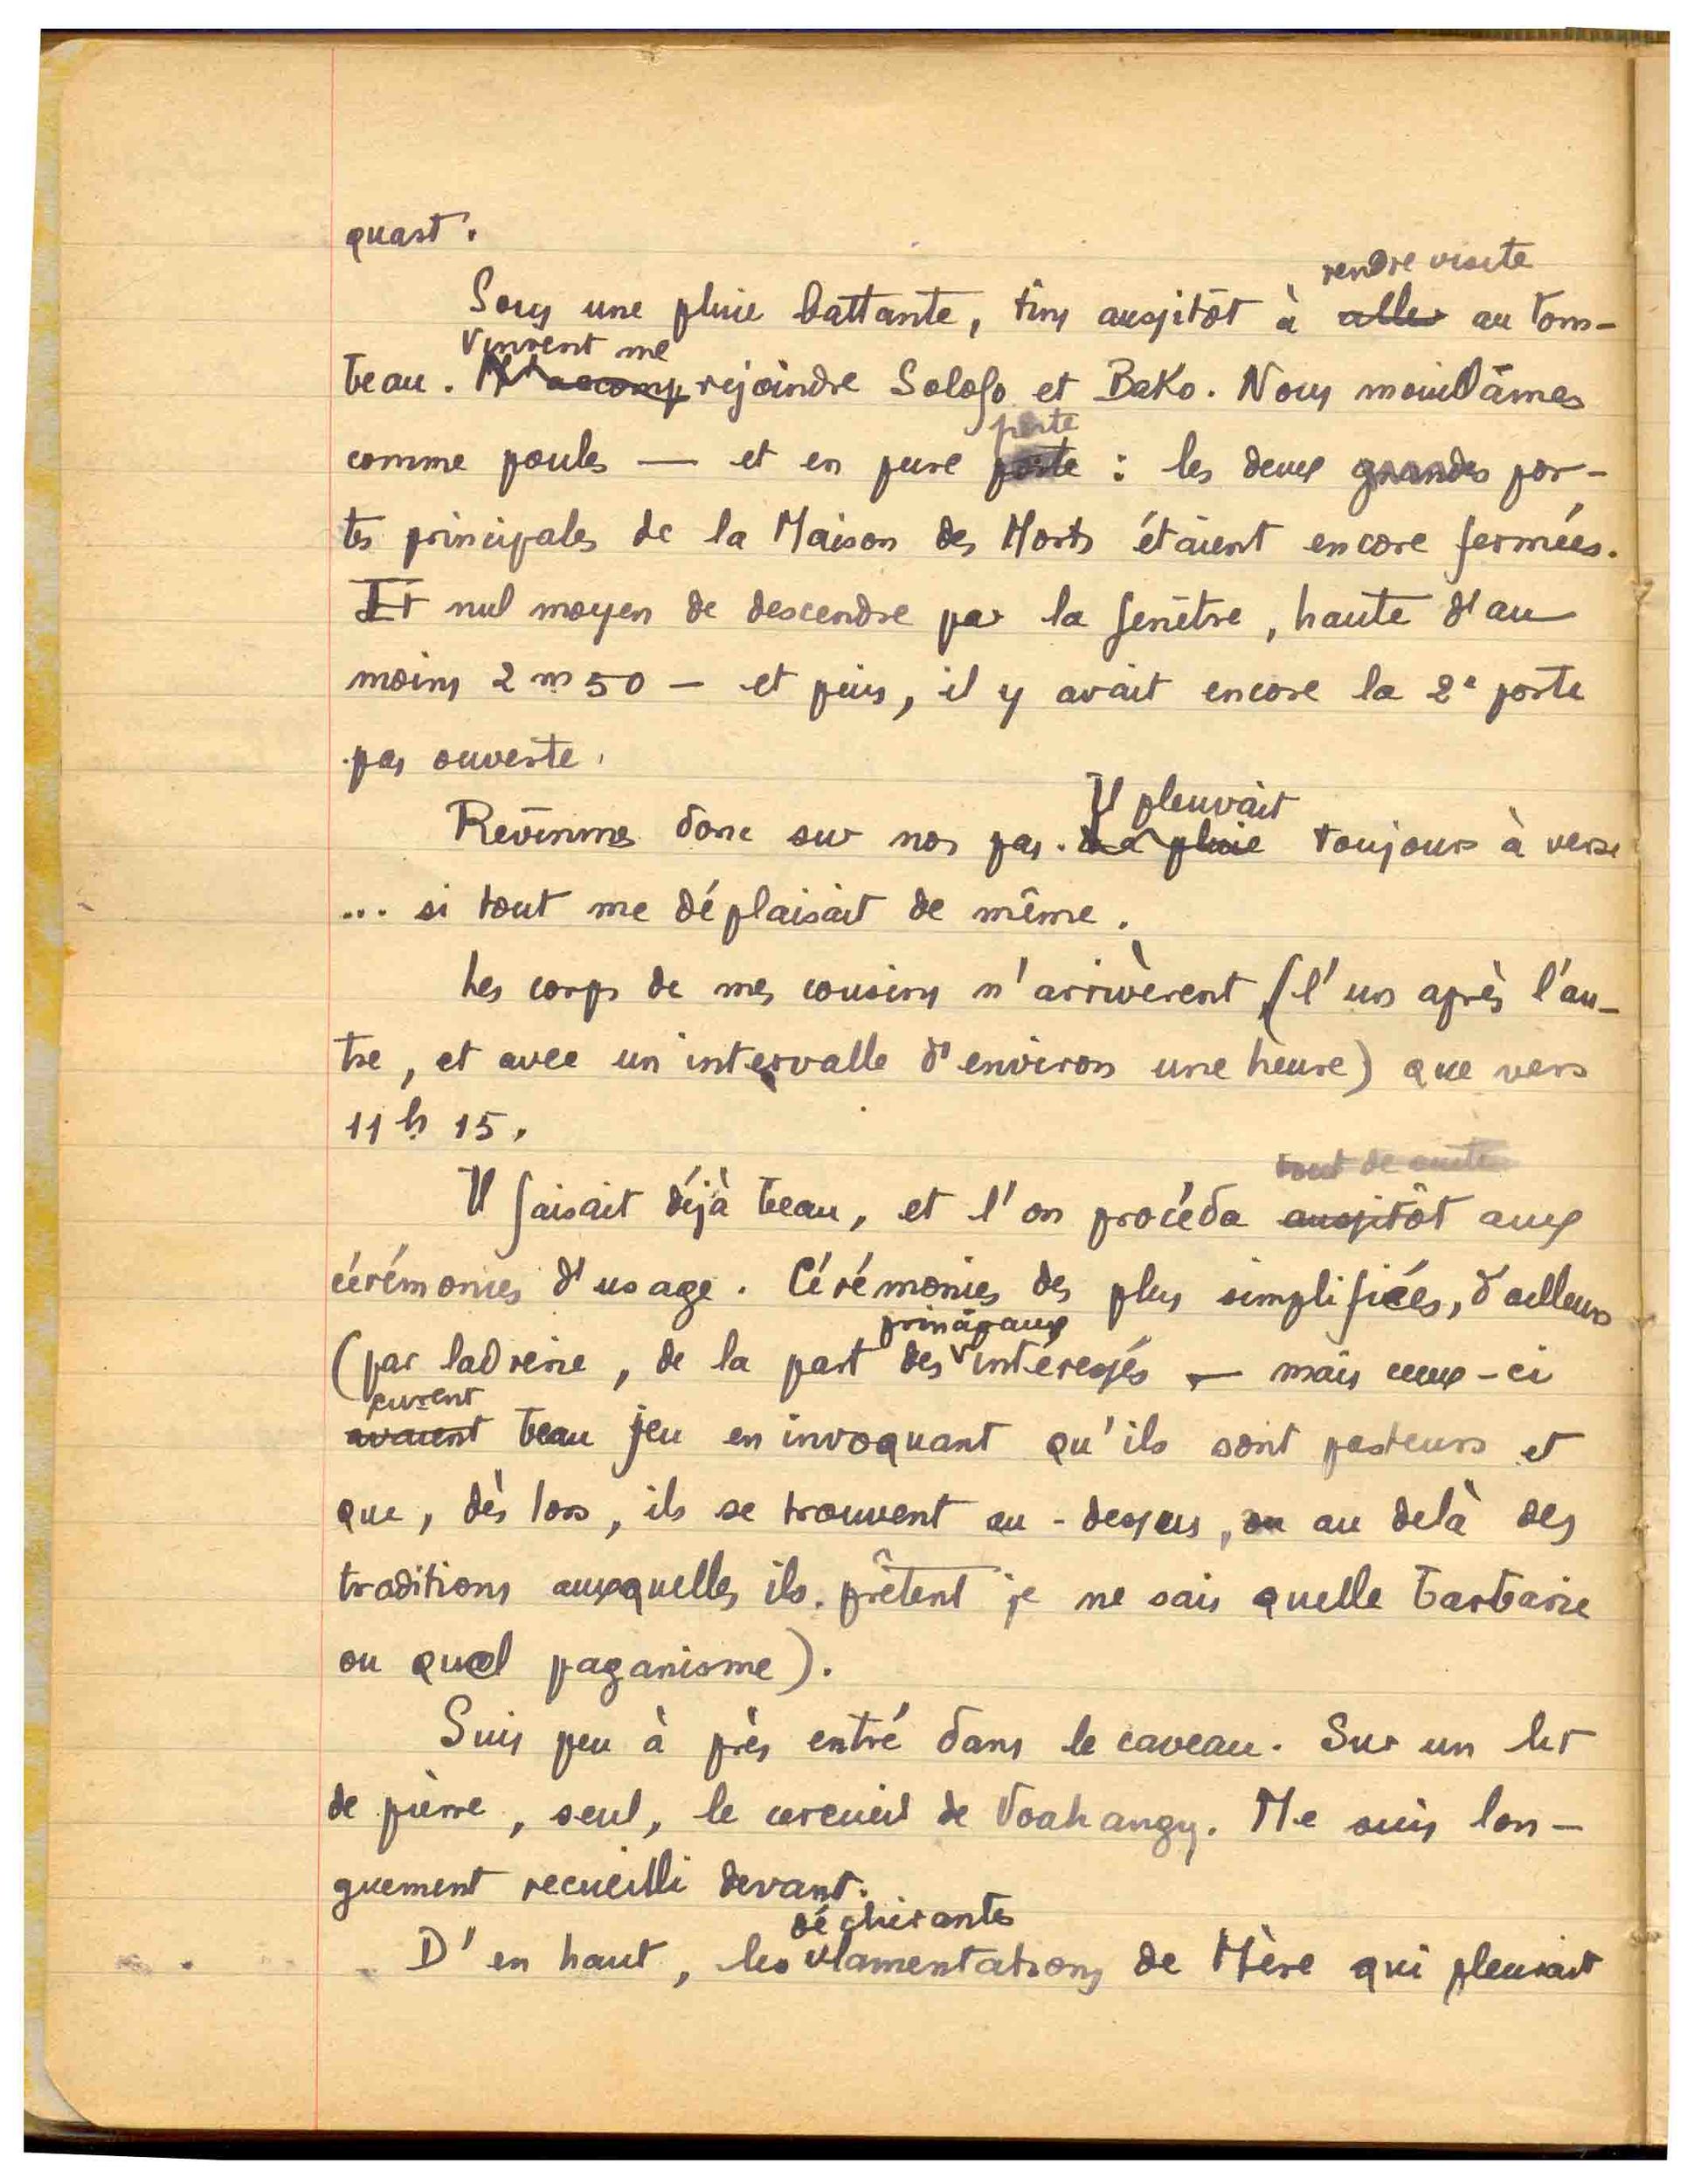 quast.
rendre visite
Sous une pluie battante, tins aussitôt à aller au tom-
Vinrent me
beau. M'accomp rejoindre Solofo et Bako. Nous mouillâmes
perte
comme poules — et en pure perte : les deux grandes por-
tes principales de la Maison des Morts étaient encore fermées.
Et nul moyen de descendre par la fenêtre, haute d'au
moins 2 m 50 — et puis, il y avait encore la 2e porte
pas ouverte.
Il pleuvait
Revînmes donc sur nos pas. La pluie toujours à verse
... si tout me déplaisait de même.
Les corps de mes cousins n'arrivèrent (l'un après l'au-
tre, et avec un intervalle d'environ une heure) que vers
11 h 15.
tout de suite
Il faisait déjà beau, et l'on procéda aussitôt aux
cérémonies d'usage. Cérémonies des plus simplifiées, d'ailleurs
principaux
(par ladrerie, de la part des intéressés — mais ceux-ci
eurent
avaient beau jeu en invoquant qu'ils sont pasteurs et
que, dès lors, ils se trouvent au-dessus, ou au delà des
traditions auxquelles ils prêtent je ne sais quelle barbarie
ou quel paganisme).
Suis peu à près entré dans le caveau. Sur un lit
de pierre, seul, le cercueil de Voahangy. Me suis lon-
guement recueilli devant.
déchirantes
D'en haut, les lamentations de Mère qui pleurait